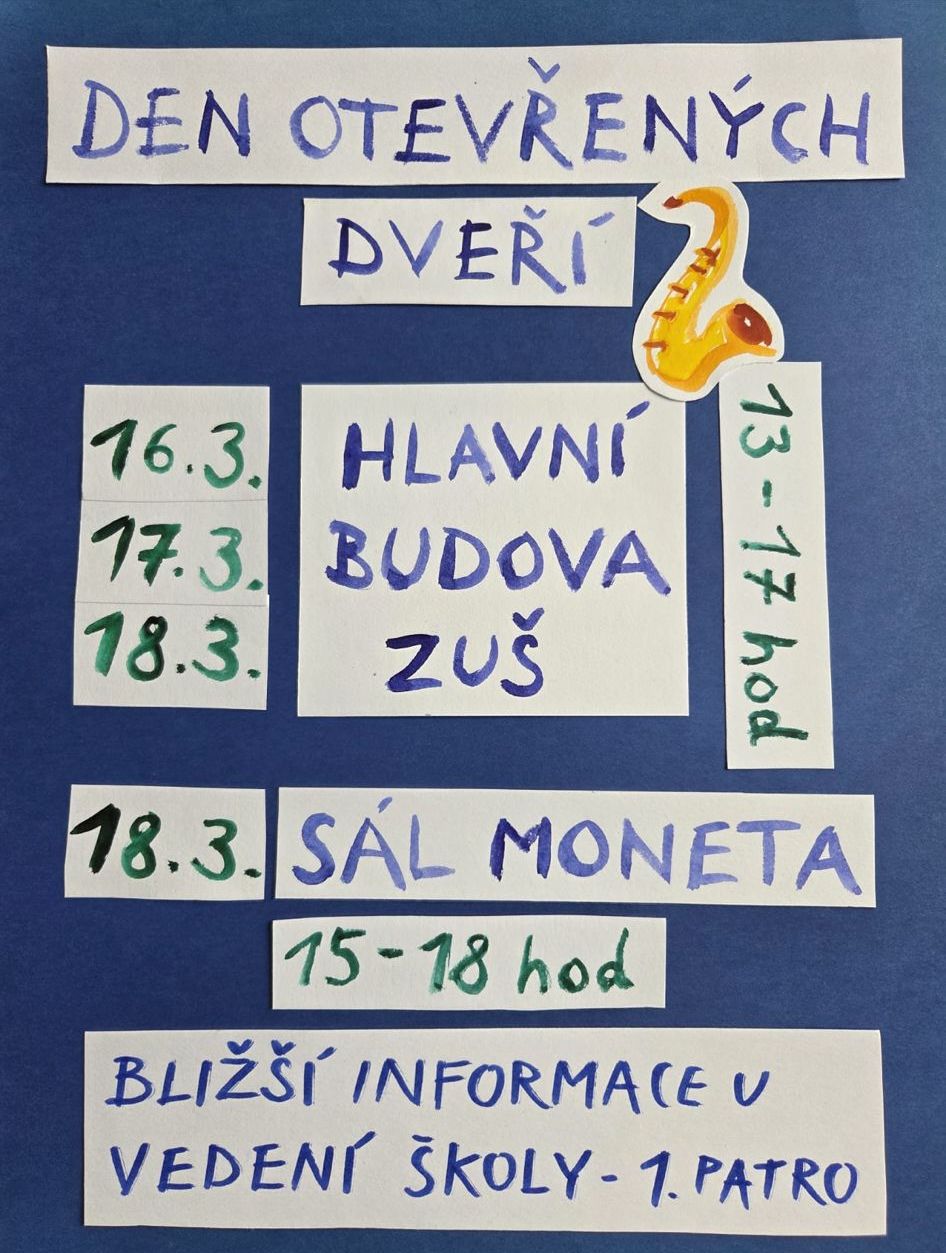 DEN OTEVŘENÝCH
DVEŘÍ
16.3.
17.3.
18.3.
HLAVNÍ
BUDOVA
ZUŠ
13-17 hod
18.3. SÁL MONETA
15-18 hod
BLIŽŠÍ INFORMACE U
VEDENÍ ŠKOLY - 1. PATRO